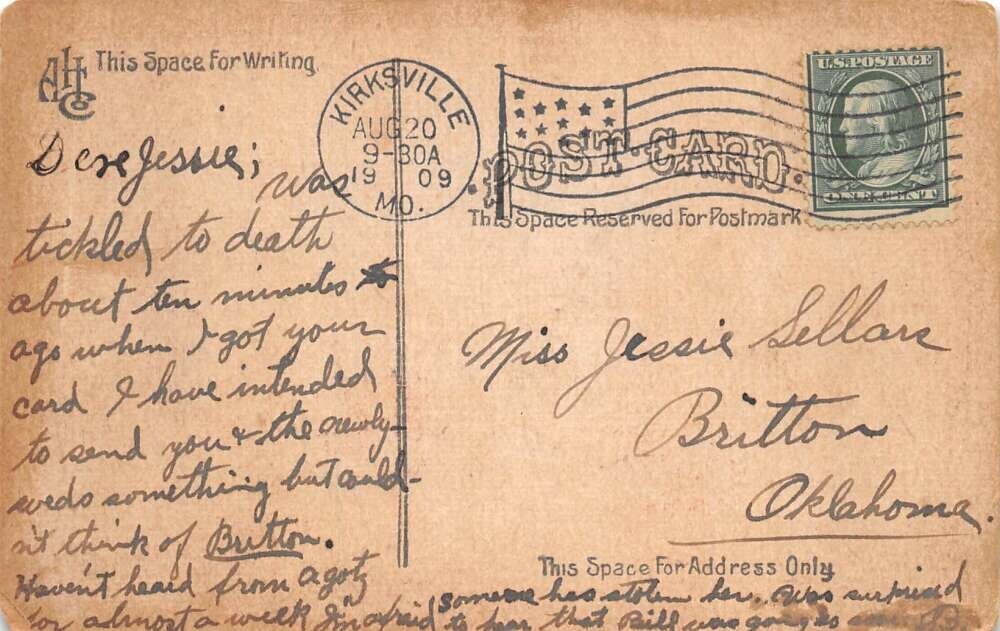 ALH Co
This Space For Writing
KIRKSVILLE
AUG 20
9-30A
19 09
MO.
POST-CARD
U.S. POSTAGE
ONE CENT
This Space Reserved For Postmark
Dere Jessie;
was
tickled to death
about ten minutes
ago when I got your
card I have intended
to send you & the newly-
weds something but could-
n't think of Britton.
Haven't heard from
for almost a week I'm afraid
someone has stolen her. Was surprised
to hear that Bill was going
Miss Jessie Sellars
Britton
Oklahoma.
This Space For Address Only